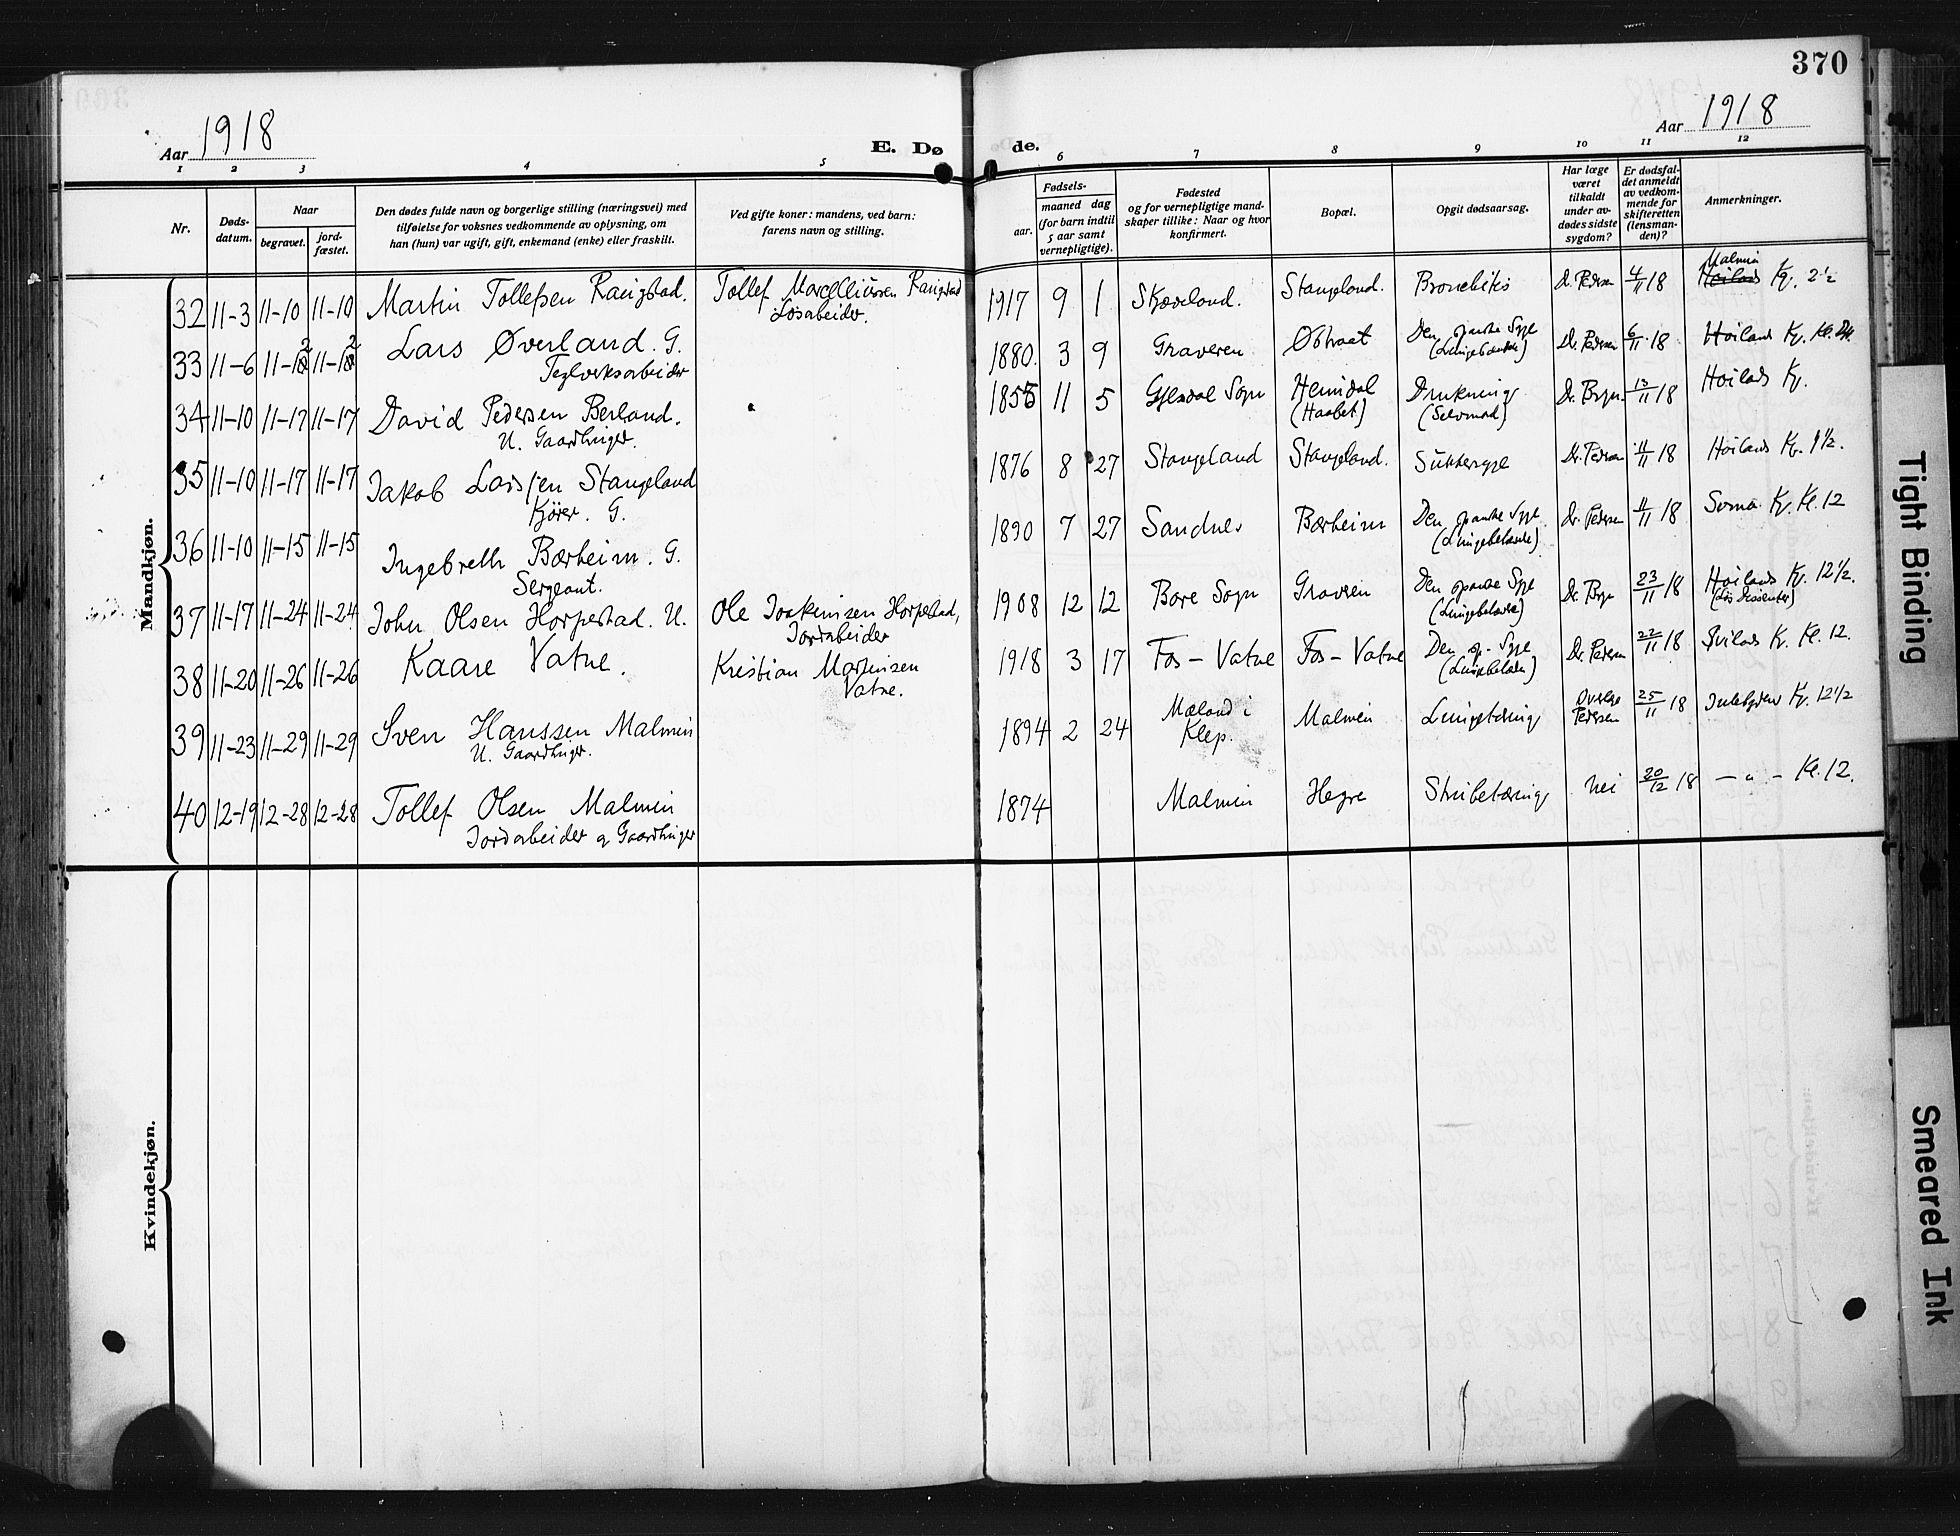 370
Aar 1918
E. Dø
de.
Aar 1918
1 2 3 4 5 6 7 8 9 10 11 12
Nr.
Døds-
datum.
Naar
begravet.
jord-
fæstet.
Den dødes fulde navn og borgerlige stilling (næringsvei) med
tilføielse for voksnes vedkommende av oplysning, om
han (hun) var ugift, gift, enkemand (enke) eller fraskilt.
Ved gifte koner: mandens, ved barn:
farens navn og stilling.
Fødsels-
aar.
maaned dag
(for barn indtil
5 aar samt
vernepligtige).
Fødested
og for vernepligtige mand-
skaper tillike: Naar og hvor
konfirmert.
Bopæl.
Opgit dødsaarsag.
Har læge
været
tilkaldt
under av-
dødes sidste
sygdom?
Er dødsfal-
det anmeldt
av vedkom-
mende for
skifteretten
(lensman-
den)?
Anmerkninger.
Mandkjøn.
32 11-3 11-10 11-10 Martin Tollefsen Raugstad. Tollef Marcelliussen Raugstad 1917 9 1 Skjæveland. Stangeland. Bronchitis Dr. Pedersen 4/11 18 Malmin Høiland Kg. 2 ½
Løsarbeider.
33 11-6 11-12 11-12 Lars Øverland. G. 1880. 3 9 Graveren Østraat Den spanske Syge Dr. Pedersen 6/11 18 Høiland Kg.
Teglverksarbeider
34 11-10 11-17 11-17 David Pedersen Berland. 1855 11 5 Gjesdal Sogn Heimdal Drukning Dr. 13/11 18 Høilands Kg.
U. Gaardbruger. (Haabet) (Selvmord)
35 11-10 11-17 11-17 Jakob Larssen Stangeland 1876 8 27 Stangeland Stangeland. Sukkersyge Dr. Pedersen 11/11 18 Høilands Kg. 1 ½.
Kjører. G.
36 11-10 11-15 11-15 Ingebreth Bærheim. G. 1890 7 27 Sandnes Bærheim Den spanske Syge Dr. Pedersen 11/11 18 Soma Kg. Kl. 12
Sergeant.
37 11-17 11-24 11-24 John Olsen Horpestad. U. Ole Joakimsen Horpestad, 1908 12 12 Bore Sogn Graveren Den spanske Syge Dr. 23/11 18 Høilands Kg. 12 ½.
Jordarbeider
38 11-20 11-26 11-26 Kaare Vatne. Kristian Martinsen 1918 3 17 Fos-Vatne Fos-Vatne Den sp. Syge Dr. Pedersen 22/11 18 Kg. Kl. 12.
Vatne.
39 11-23 11-29 11-29 Sven Hanssen Malmin 1894 2 24 Mæland i Malmin Lungetæring Pedersen 25/11 18 Kg. 12 ½
U. Gaardbruger. Klep.
40 12-19 12-28 12-28 Tollef Olsen Malmin 1874 Malmin Hegre Strubetæring Nei 20/12 18 — " — Kl. 12.
Jordarbeider og Gaardbruger
Kvindekjøn.
Tight Binding
Smeared Ink